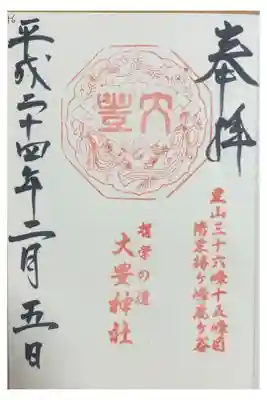 奉拝
東山三十六峰十五峰目
洛東椿ヶ峰鹿ヶ谷
大豊
哲学の道
大豊神社
平成二十四年二月五日